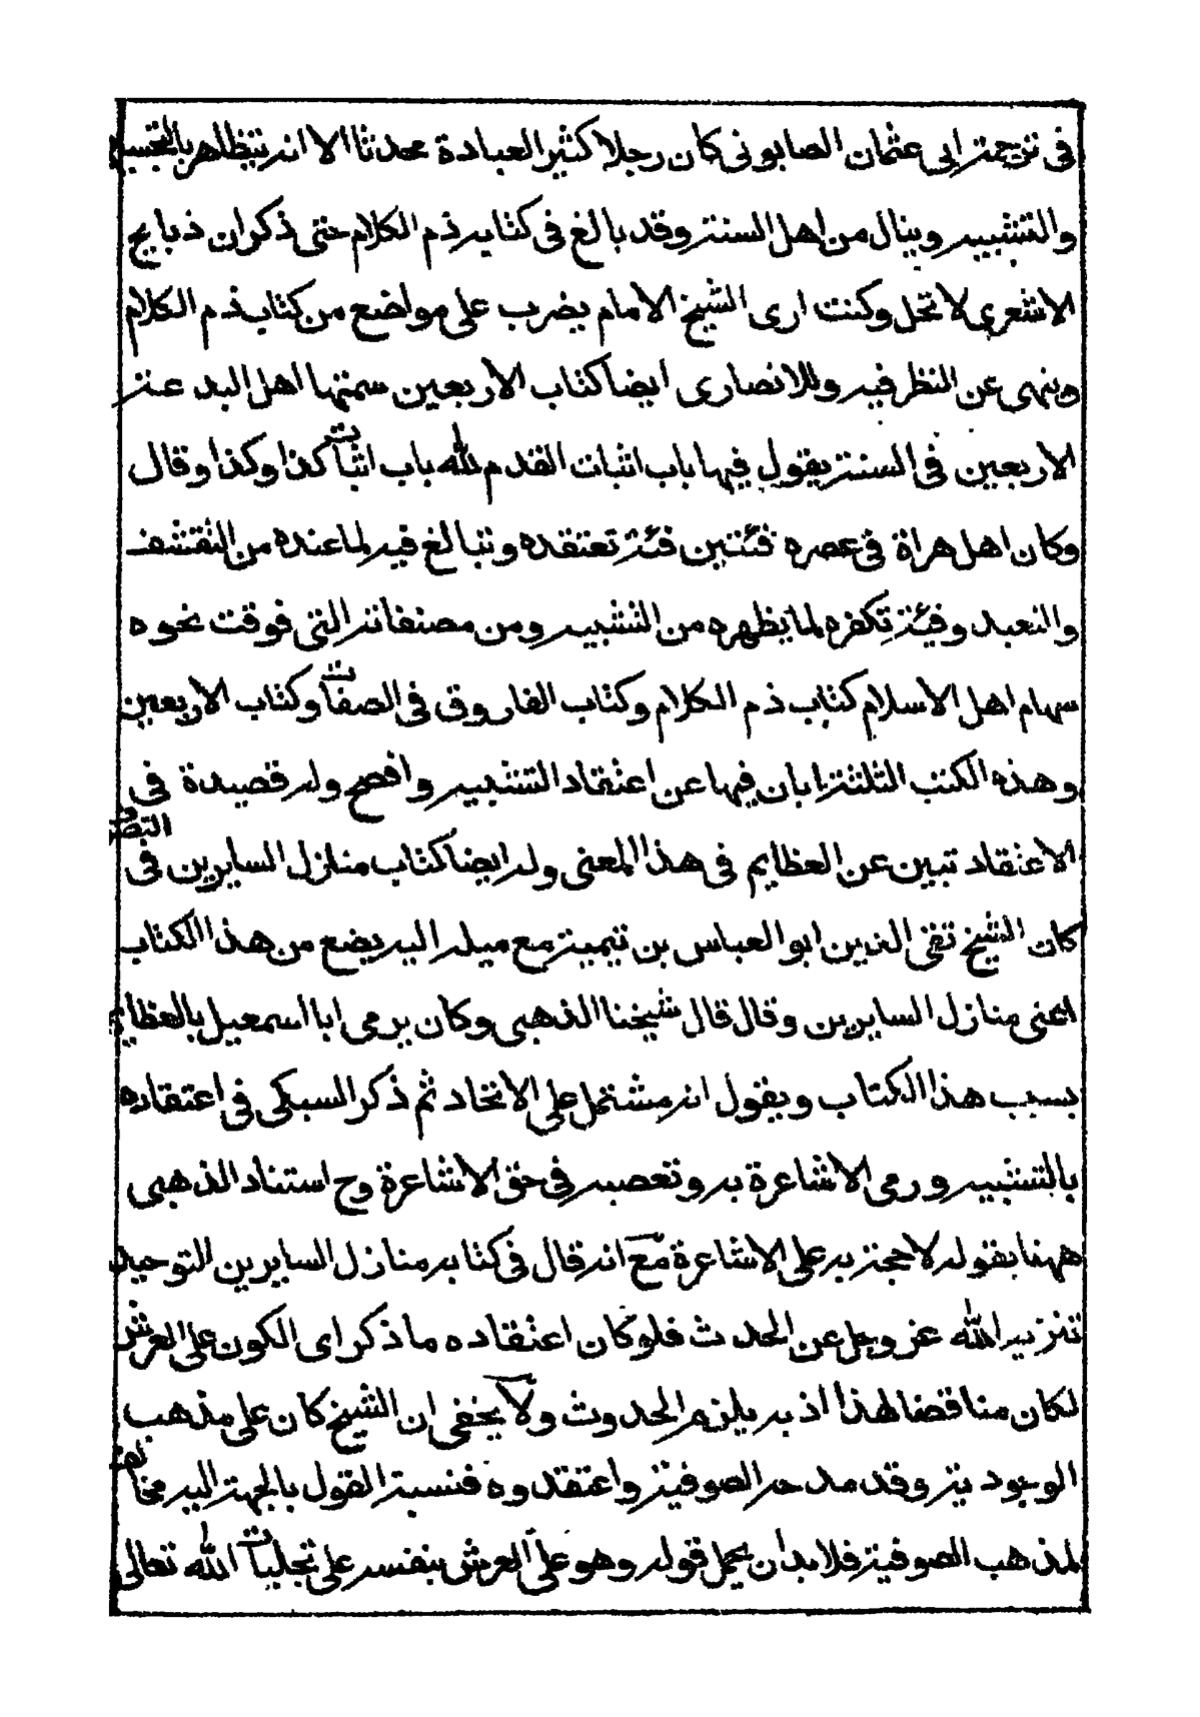 فى ترجمة ابى عثمان الصابونى كان رجلا كثير العبادة محدثا الا انه يتظاهر بالتجسيم
والتشبيه وينال من اهل السنة وقد بالغ فى كتابه ذم الكلام حتى ذكر ان ذبايح
الاشعرى لا تحل وكنت ارى الشيخ الامام يضرب على مواضع من كتاب ذم الكلام
وينهى عن النظر فيه وللانصارى ايضا كتاب الاربعين سمتها اهل البدعة
الاربعين فى السنة يقول فيها باب اثبات القدم لله باب اثبات كذا وكذا وقال
وكان اهل هراة فى عصره فئتين فئة تعتقده وتبالغ فيه لما عنده من التقشف
والتعبد وفئة تكفره لما يظهره من التشبيه ومن مصنفاته التى فوقت نحوه
سهام اهل الاسلام كتاب ذم الكلام وكتاب الفاروق فى الصفات وكتاب الاربعين
وهذه الكتب الثلثة ابان فيها عن اعتقاد التشبيه وافصح وله قصيدة فى
الاعتقاد تبين عن العظايم فى هذا المعنى وله ايضا كتاب منازل السايرين فى التصوف
كان الشيخ تقى الدين ابو العباس بن تيمية مع ميله اليه يضع من هذا الكتاب
اعنى منازل السايرين وقال قال شيخنا الذهبى وكان يرمى ابا اسمعيل بالعظايم
بسبب هذا الكتاب ويقول انه مشتمل على الاتحاد ثم ذكر السبكى فى اعتقاده
بالتشبيه ورمى الاشاعرة به وتعصبه فى حق الاشاعرة وح استناد الذهبى
ههنا بقوله لا حجة به على الاشاعرة مع انه قال فى كتابه منازل السايرين التوحيد
تنزيه الله عز وجل عن الحدث فلو كان اعتقاده ما ذكر اى الكون على العرش
لكان مناقضا لهذا اذ به يلزم الحدوث ولا يخفى ان الشيخ كان على مذهب
الوجودية وقد مدحه الصوفية واعتقدوه فنسبة القول بالجهة اليه مخالفة
لمذهب الصوفية فلا بد ان يحمل قوله وهو على العرش بنفسه على تجليات الله تعالى